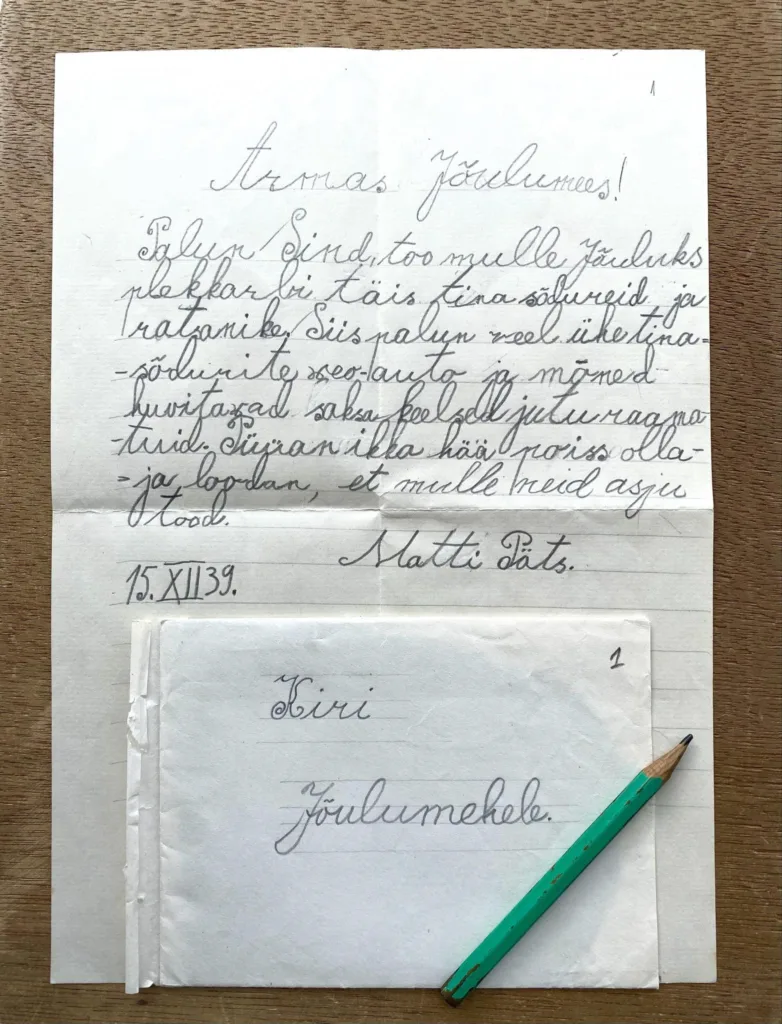 1
Armas Jõulumees!
Palun Sind, too mulle Jõuluks
plekkarbi täis tina sõdureid ja
ratsanike. Siis palun veel ühe tina-
-sõdurite veo-auto ja mõned
huvitavad saksa keelsed juturaama-
-tuid. Püüan ikka hää poiss olla-
-ja loodan, et mulle neid asju
tood.
Matti Päts.
15. XII 39.
1
Kiri
Jõulumehele.